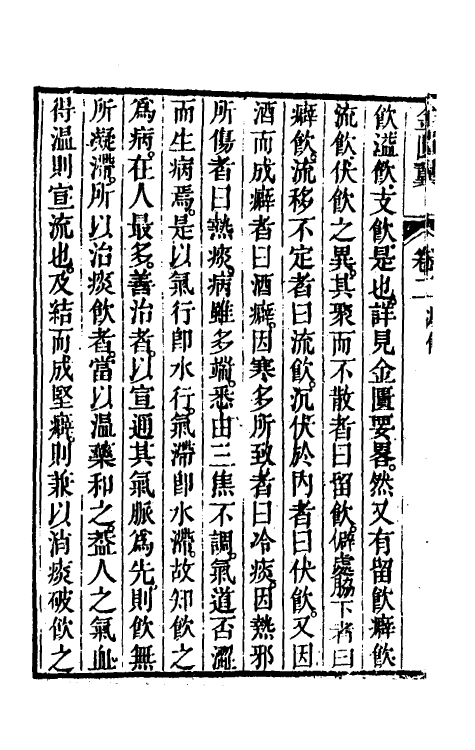 金匱翼
卷二
飲溢飲支飲是也詳見金匱要畧然又有留飲癖飲
流飲伏飲之異其聚而不散者曰留飲僻處脇下者曰
癖飲流移不定者曰流飲沉伏於內者曰伏飲又因
酒而成癖者曰酒癖因寒多所致者曰冷痰因熱邪
所傷者曰熱痰病雖多端悉由三焦不調氣道否澀
而生病焉是以氣行卽水行氣滯卽水滯故知飲之
爲病在人最多善治者以宣通其氣脈爲先則飲無
所凝滯所以治痰飲者當以温藥和之葢人之氣血
得温則宣流也及結而成堅癖則兼以消痰破飲之